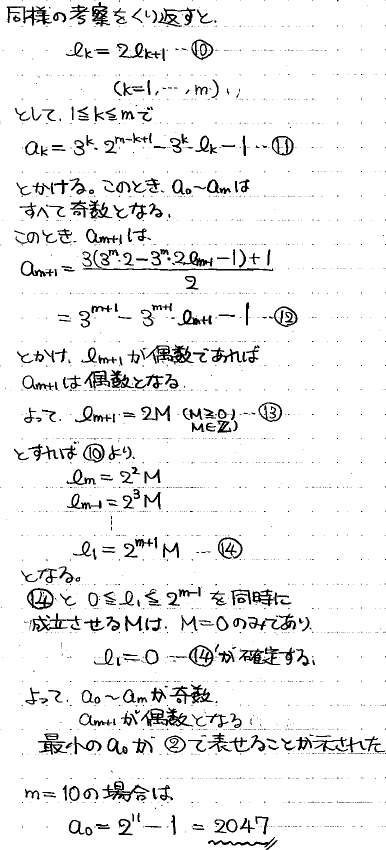 同様の考察をくり返すと、
ℓk = 2ℓk+1 …⑩
(k=1, …, m),,
として、1≦k≦mで
ak = 3^k・2^(m-k+1) - 3^k・ℓk - 1 …⑪
とかける。このとき、a0~amは
すべて奇数となる。
このとき、am+1は、
am+1 = (3(3^m・2 - 3^m・2ℓm+1 - 1) + 1)/2
= 3^(m+1) - 3^(m+1)・ℓm+1 - 1 …⑫
とかけ、ℓm+1が偶数であれば
am+1は偶数となる
よって、ℓm+1 = 2M (M≧0, M∈Z) …⑬
とすれば⑩より、
ℓm = 2^2 M
ℓm-1 = 2^3 M
⋮
ℓ1 = 2^(m+1) M …⑭
となる。
⑭と 0≦ℓ1≦2^(m-1) を同時に
成立させるMは、M=0のみであり、
ℓ1 = 0 …⑭'が確定する。
よって、a0~amが奇数、
am+1が偶数となる
最小のa0が②で表せることが示された
m=10の場合は、
a0 = 2^11 - 1 = 2047